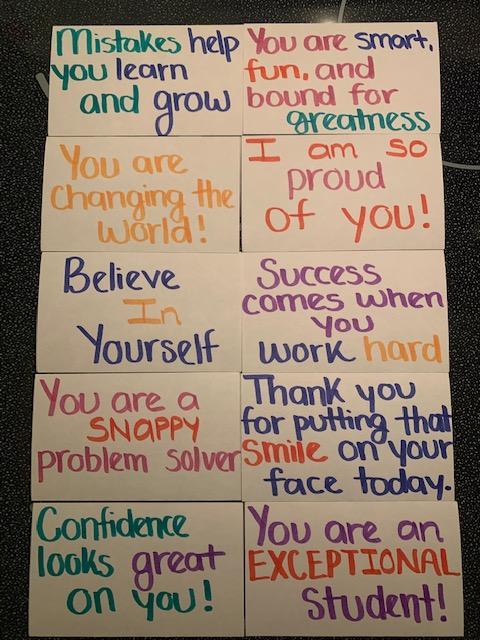 Mistakes help
you learn
and grow
You are smart,
fun, and
bound for
greatness
You are
changing the
world!
I am so
proud
of you!
Believe
In
Yourself
Success
comes when
you
work hard
You are a
SNAPPY
problem solver
Thank you
for putting that
smile on your
face today.
Confidence
looks great
on you!
You are an
EXCEPTIONAL
Student!